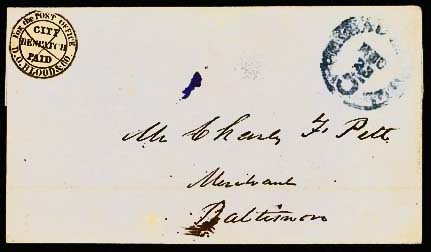 For the POST OFFICE
CITY
DESPATCH
PAID
D.O. BLOOD & CO
DEC
23
Mr Charles F. Pett
Merchant
Baltimore